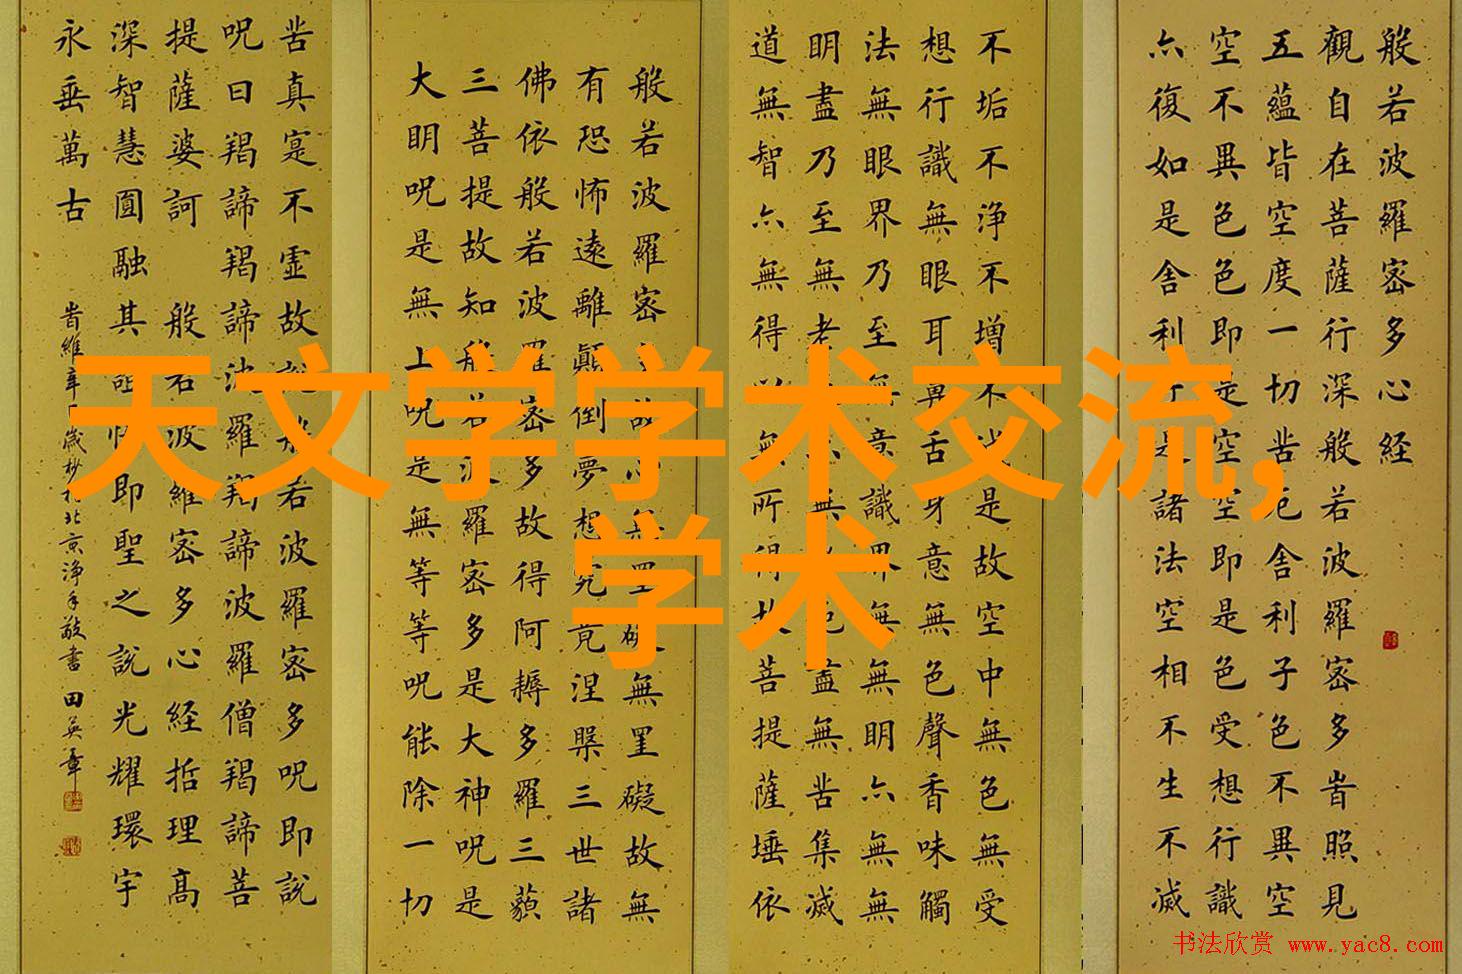 般若波羅密多心经
觀自在菩薩行深般若波羅密多旹照見
五蘊皆空度一切苦厄舍利子色不異空
空不異色色即是空空即是色受想行識
亦復如是舍利子是諸法空相不生不滅
不垢不浄不增不減是故空中無色無受
想行識無眼耳鼻舌身意無色聲香味觸
法無眼界乃至無意識界無無明亦無無
明盡乃至無老無色盡無苦集滅
道無智亦無得以無所得故菩提薩埵依
般若波羅密多故心無罣礙無罣礙故無
有恐怖遠離顛倒夢想究竟涅槃三世諸
佛依般若波羅密多故得阿耨多羅三藐
三菩提故知般若波羅密多是大神呪是
大明呪是無上呪是無等等呪能除一切
苦真寔不虛故說般若波羅密多呪即說
呪曰羯諦羯諦波羅羯諦波羅僧羯諦菩
提薩婆訶 般若波羅密多心经括理高
深智慧圓融其即聖之説光耀環宇
永垂萬古
旹維辛歲杪北京浄手敬書 田英章
天文学学术交流,
学术
书法欣赏 www.yac8.com